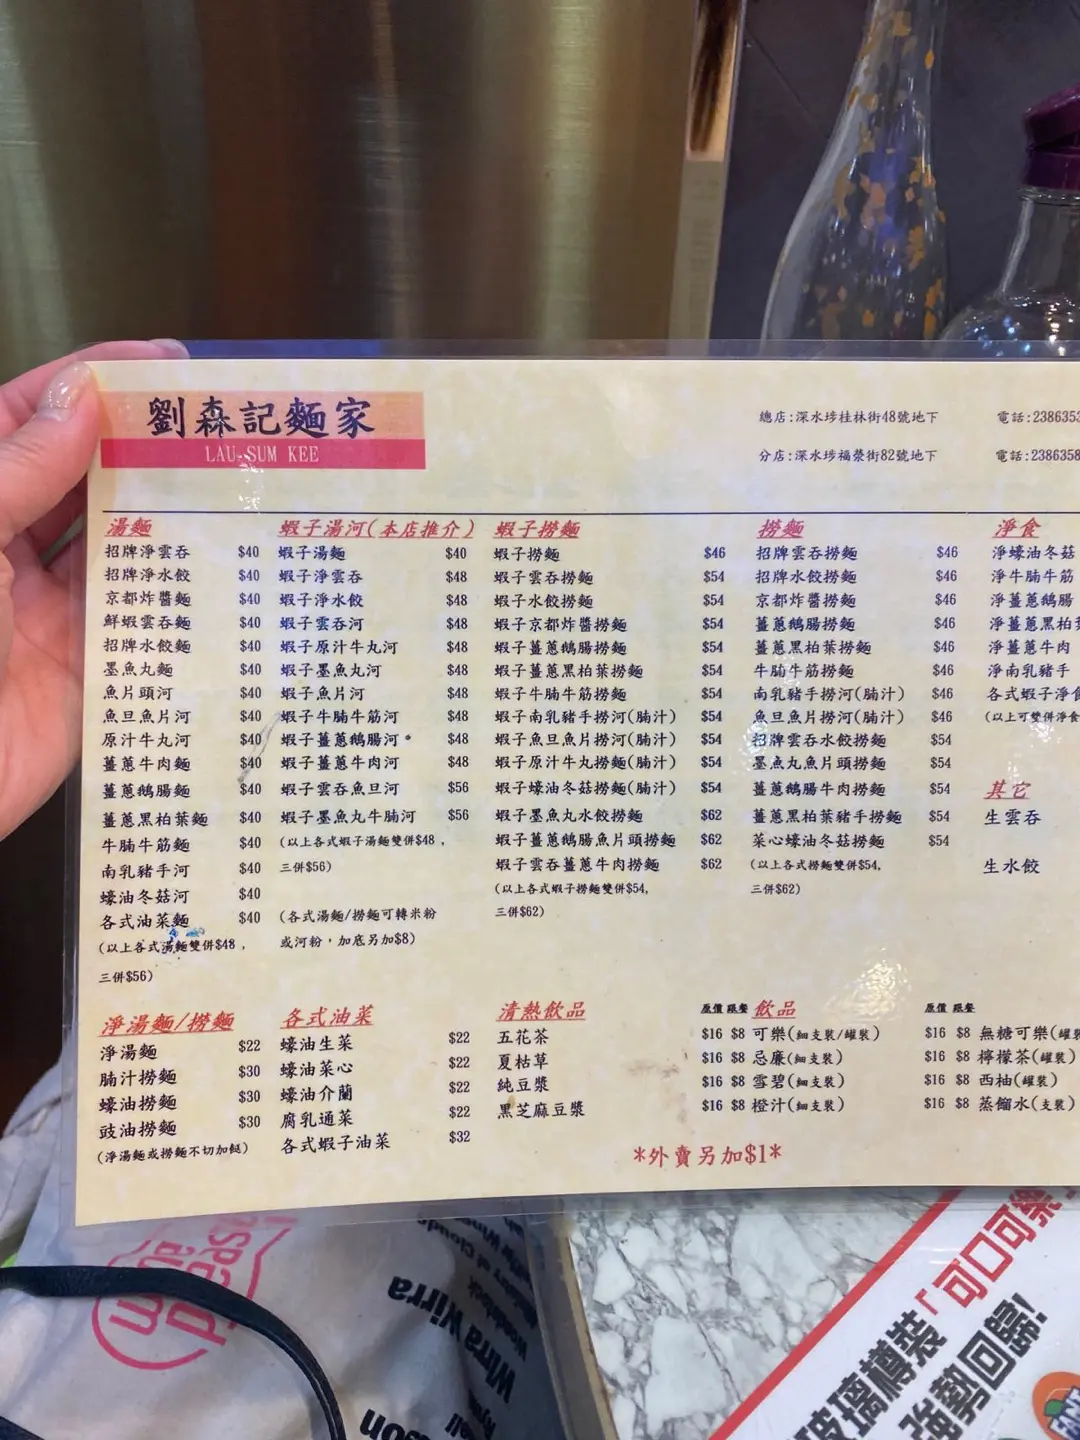 劉森記麵家
LAU SUM KEE
總店:深水埗桂林街48號地下
電話:2386353
分店:深水埗福榮街82號地下
電話:2386358
湯麵
招牌淨雲吞 $40
招牌淨水餃 $40
京都炸醬麵 $40
鮮蝦雲吞麵 $40
招牌水餃麵 $40
墨魚丸麵 $40
魚片頭河 $40
魚旦魚片河 $40
原汁牛丸河 $40
薑蔥牛肉麵 $40
薑蔥鵝腸麵 $40
薑蔥黑柏葉麵 $40
牛腩牛筋麵 $40
南乳豬手河 $40
蠔油冬菇河 $40
各式油菜麵 $40
(以上各式湯麵雙併$48，
三併$56)
蝦子湯河(本店推介)
蝦子湯麵 $40
蝦子淨雲吞 $48
蝦子淨水餃 $48
蝦子雲吞河 $48
蝦子原汁牛丸河 $48
蝦子墨魚丸河 $48
蝦子魚片河 $48
蝦子牛腩牛筋河 $48
蝦子薑蔥鵝腸河 $48
蝦子薑蔥牛肉河 $48
蝦子雲吞魚旦河 $56
蝦子墨魚丸牛腩河 $56
(以上各式蝦子湯麵雙併$48，
三併$56)
(各式湯麵/撈麵可轉米粉
或河粉，加底另加$8)
蝦子撈麵
蝦子撈麵 $46
蝦子雲吞撈麵 $54
蝦子水餃撈麵 $54
蝦子京都炸醬撈麵 $54
蝦子薑蔥鵝腸撈麵 $54
蝦子薑蔥黑柏葉撈麵 $54
蝦子牛腩牛筋撈麵 $54
蝦子南乳豬手撈河(腩汁) $54
蝦子魚旦魚片撈河(腩汁) $54
蝦子原汁牛丸撈麵(腩汁) $54
蝦子蠔油冬菇撈麵(腩汁) $54
蝦子墨魚丸水餃撈麵 $62
蝦子薑蔥鵝腸魚片頭撈麵 $62
蝦子雲吞薑蔥牛肉撈麵 $62
(以上各式蝦子撈麵雙併$54,
三併$62)
撈麵
招牌雲吞撈麵 $46
招牌水餃撈麵 $46
京都炸醬撈麵 $46
薑蔥鵝腸撈麵 $46
薑蔥黑柏葉撈麵 $46
牛腩牛筋撈麵 $46
南乳豬手撈河(腩汁) $46
魚旦魚片撈河(腩汁) $46
招牌雲吞水餃撈麵 $54
墨魚丸魚片頭撈麵 $54
薑蔥鵝腸牛肉撈麵 $54
薑蔥黑柏葉豬手撈麵 $54
菜心蠔油冬菇撈麵 $54
(以上各式撈麵雙併$54,
三併$62)
淨食
淨蠔油冬菇
淨牛腩牛筋
淨薑蔥鵝腸
淨薑蔥黑柏葉
淨薑蔥牛肉
淨南乳豬手
各式蝦子淨食
(以上可雙併淨食
其它
生雲吞
生水餃
淨湯麵/撈麵
淨湯麵 $22
腩汁撈麵 $30
蠔油撈麵 $30
豉油撈麵 $30
(淨湯麵或撈麵不切加餸)
各式油菜
蠔油生菜 $22
蠔油菜心 $22
蠔油介蘭 $22
腐乳通菜 $22
各式蝦子油菜 $32
清熱飲品 原價 跟餐
五花茶 $16 $8
夏枯草 $16 $8
純豆漿 $16 $8
黑芝麻豆漿 $16 $8
飲品 原價 跟餐
可樂(細支裝/罐裝) $16 $8
忌廉(細支裝) $16 $8
雪碧(細支裝) $16 $8
橙汁(細支裝) $16 $8
無糖可樂(罐裝
檸檬茶(罐裝)
西柚(罐裝)
蒸餾水(支裝)
*外賣另加$1*
玻璃樽裝「可口可樂
強勢回歸!
Wirra Wirra
Woodstock